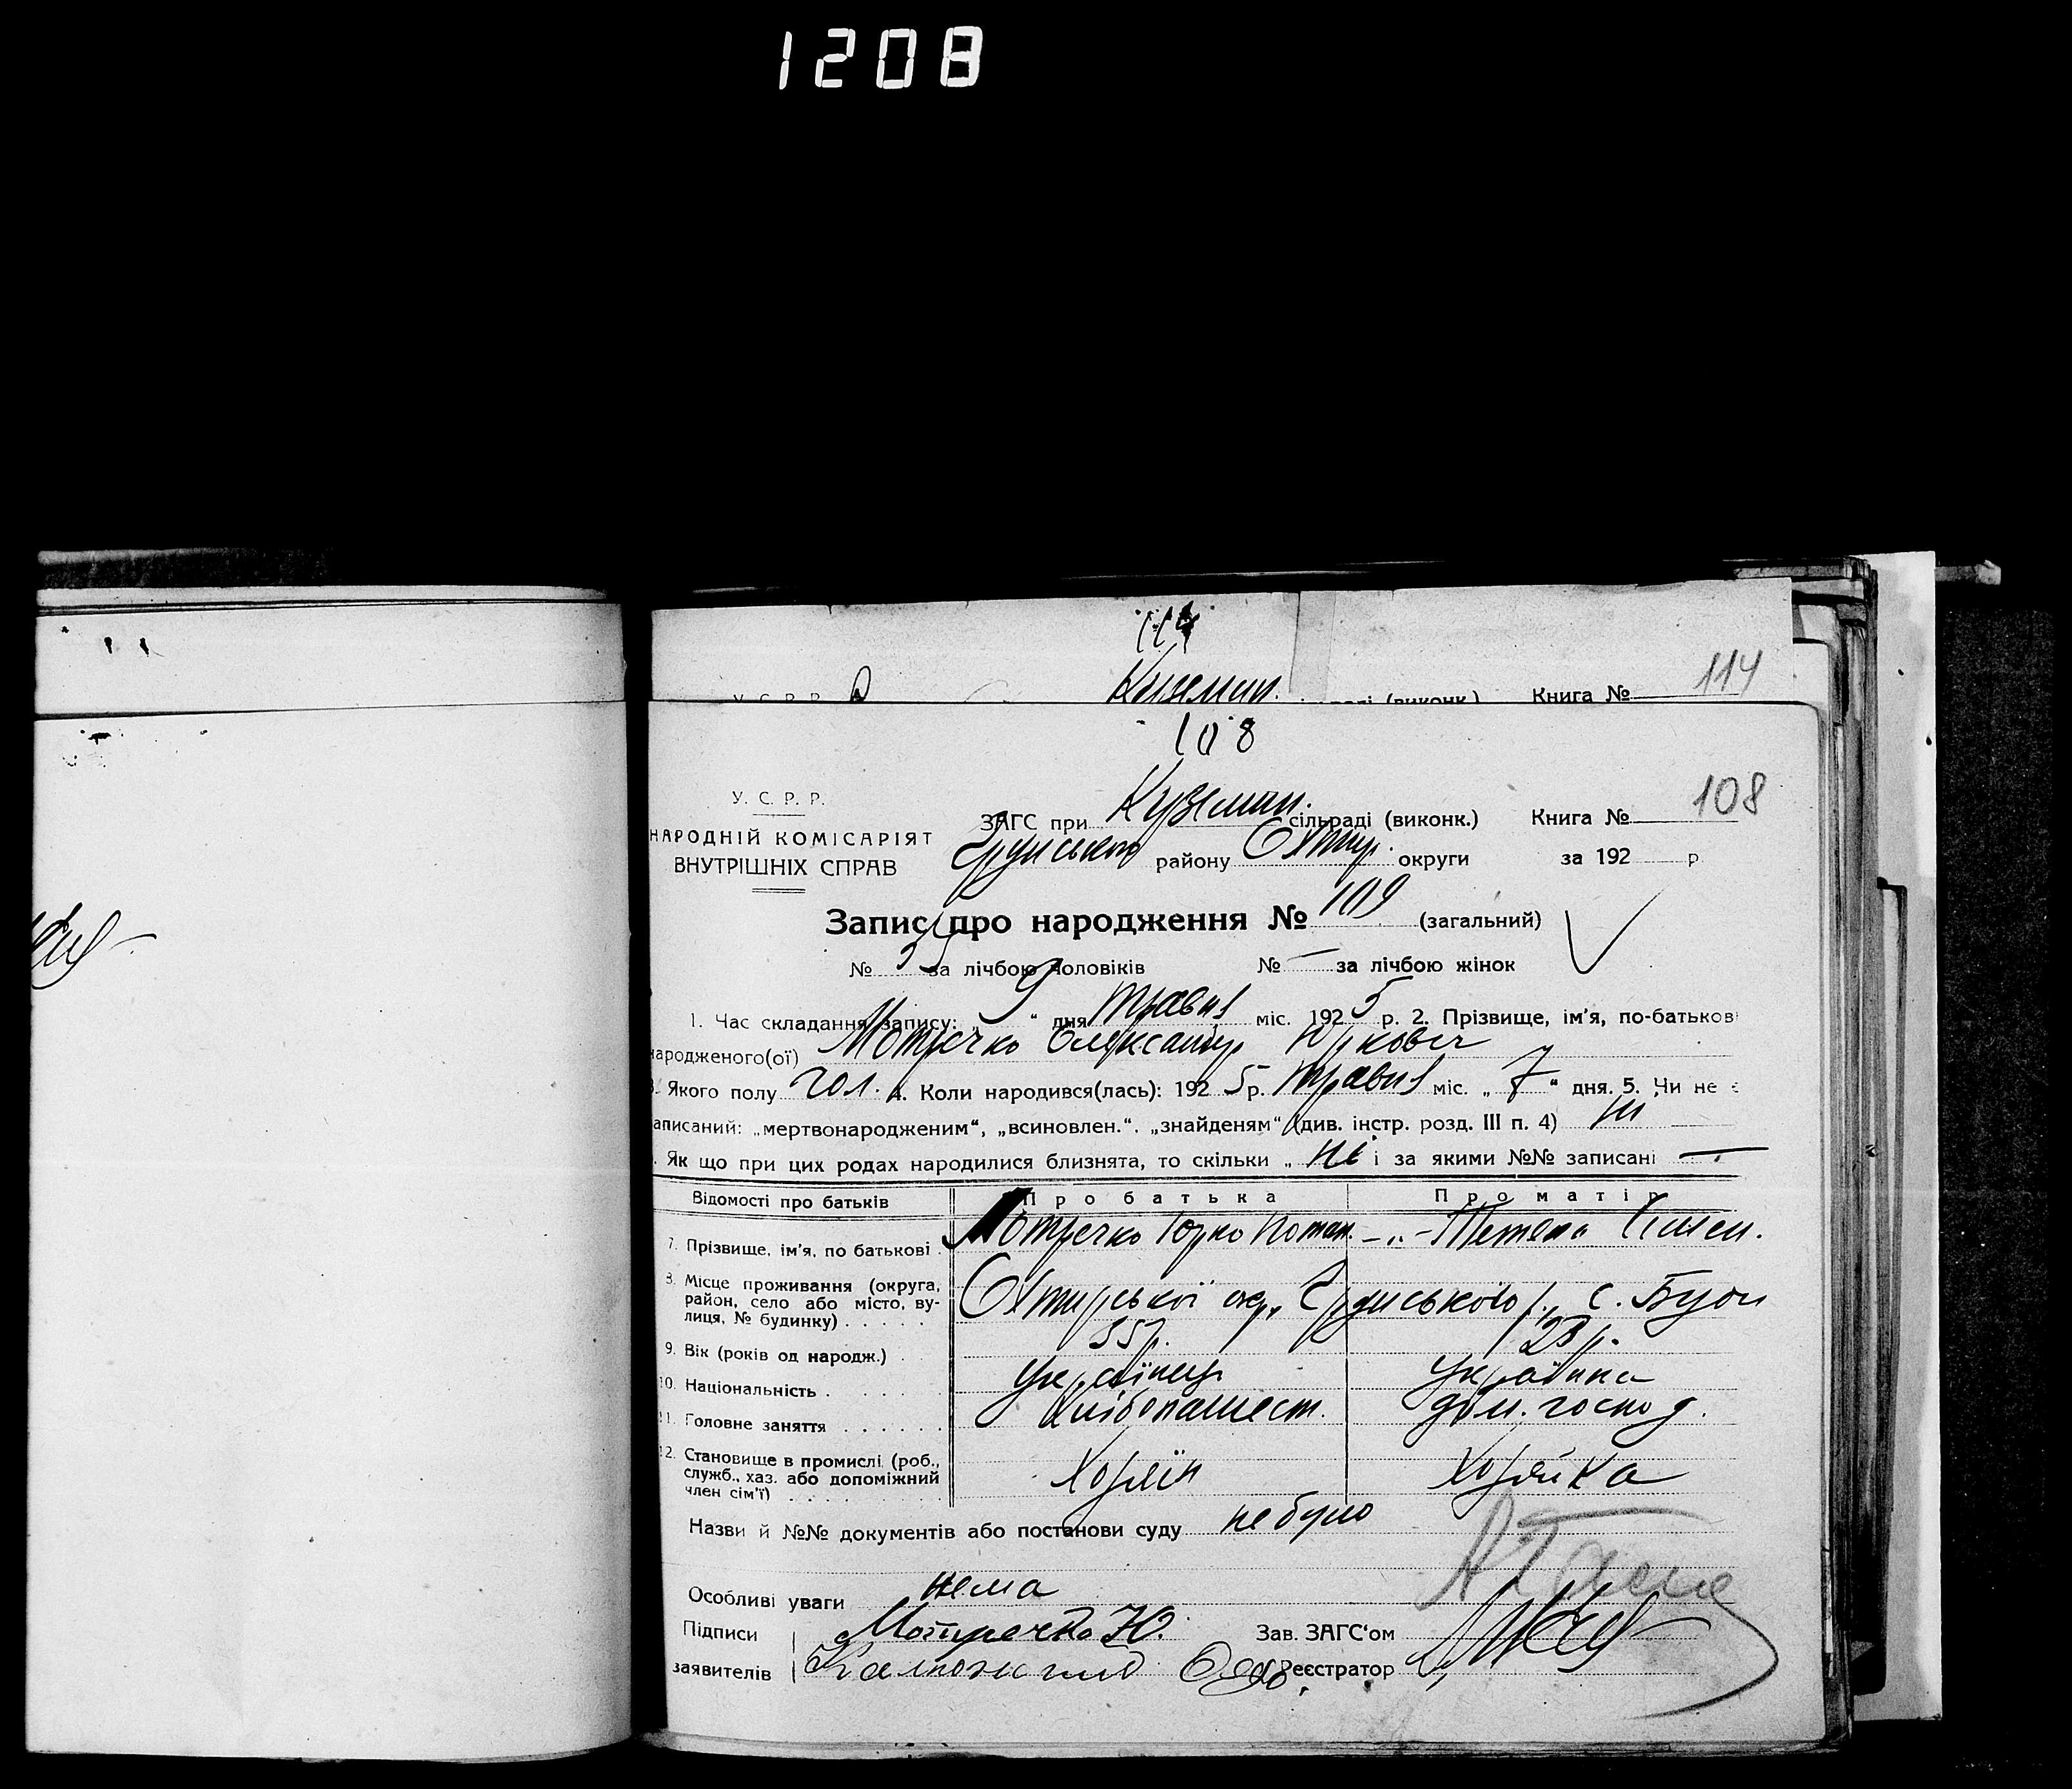 1208
114
Куземин. (виконк.) Книга № 114
108
У. С. Р. Р.
НАРОДНІЙ КОМІСАРІЯТ
ВНУТРІШНІХ СПРАВ
ЗАГС при Куземин. сільраді (виконк.) Книга № 108
Грунського району Охтир. округи за 192 р
Запис про народження № 109 (загальний)
№ 55 за лічбою чоловіків № – за лічбою жінок
1. Час складання запису: „ 9 “ дня травня міс. 1925 р. 2. Прізвище, ім'я, по-батькові
народженого(ої) Мотречко Олександр Юркович
3. Якого полу чол. 4. Коли народився(лась): 1925 р. травня міс. „ 7 “ дня. 5. Чи не є
записаний: „мертвонародженим“, „всиновлен.“, „знайденям“ (див. інстр. розд. III п. 4) ні
. Як що при цих родах народилися близнята, то скільки „ ні і за якими №№ записані —
Відомості про батьків Про батька Про матір
7. Прізвище, ім'я, по батькові . Мотречко Юрко Потап. –„– Тетяна
8. Місце проживання (округа, район, село або місто, вулиця, № будинку) . . . . . Охтирської окр., Грунського р., с.
9. Вік (років од народж.) . 28 р.
10. Національність . . . . . українець українка
11. Головне заняття . . . . . . хлібопашест. дом. господ.
12. Становище в промислі (роб., служб., хаз. або допоміжний член сім'ї) . . . . хозяїн хозяйка
Назви й №№ документів або постанови суду не було
Особливі уваги нема
Підписи Мотречко Ю. Зав. ЗАГС'ом
заявителів Реєстратор